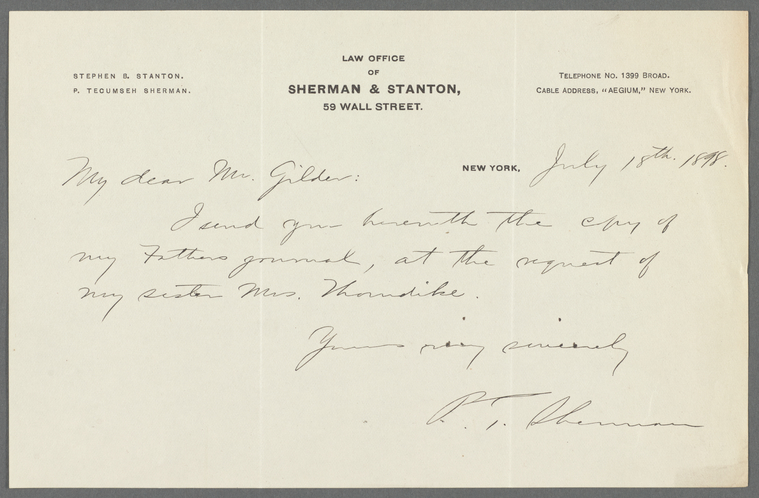 LAW OFFICE
OF
SHERMAN & STANTON,
59 WALL STREET.
STEPHEN B. STANTON.
P. TECUMSEH SHERMAN.
TELEPHONE NO. 1399 BROAD.
CABLE ADDRESS, "AEGIUM," NEW YORK.
NEW YORK, July 18th. 1898.
My dear Mr. Gilder:
I send you herewith the copy of
my Fathers journal, at the request of
my sister Mrs. Thorndike.
Yours very sincerely
P. T. Sherman